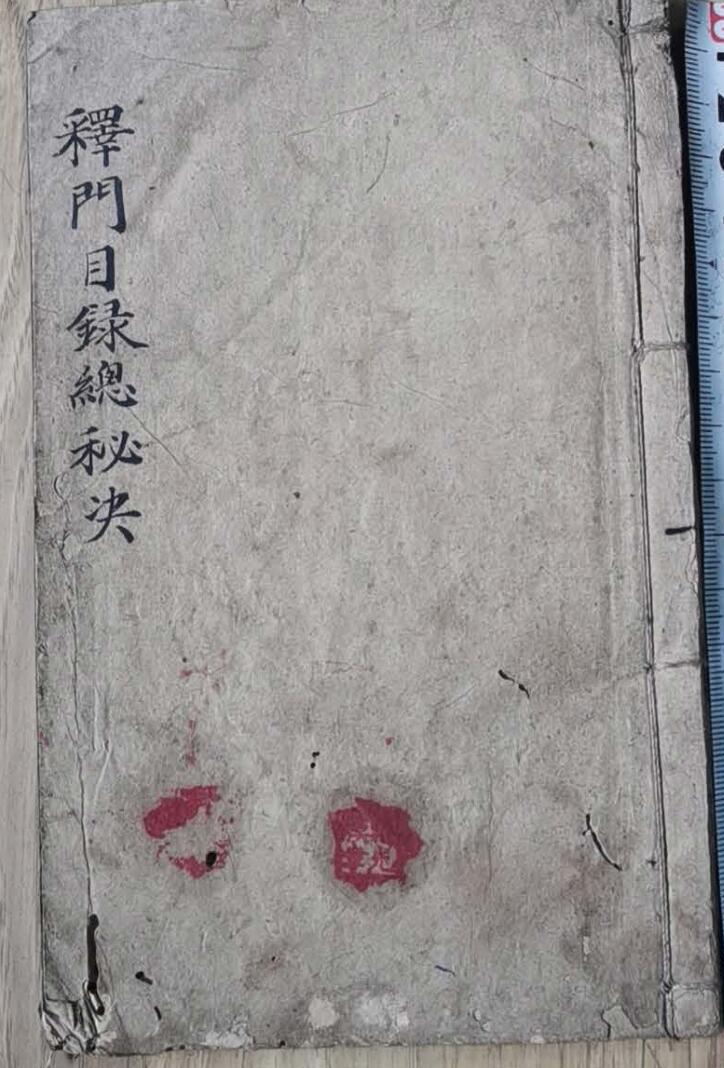 釋門目録總秘决